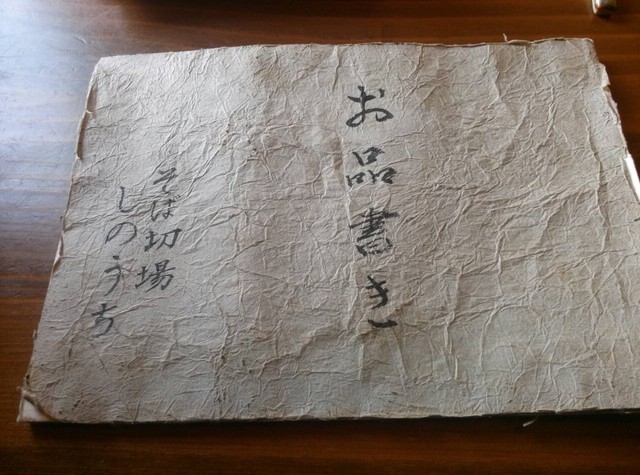 お品書き
そば切場
しのうち